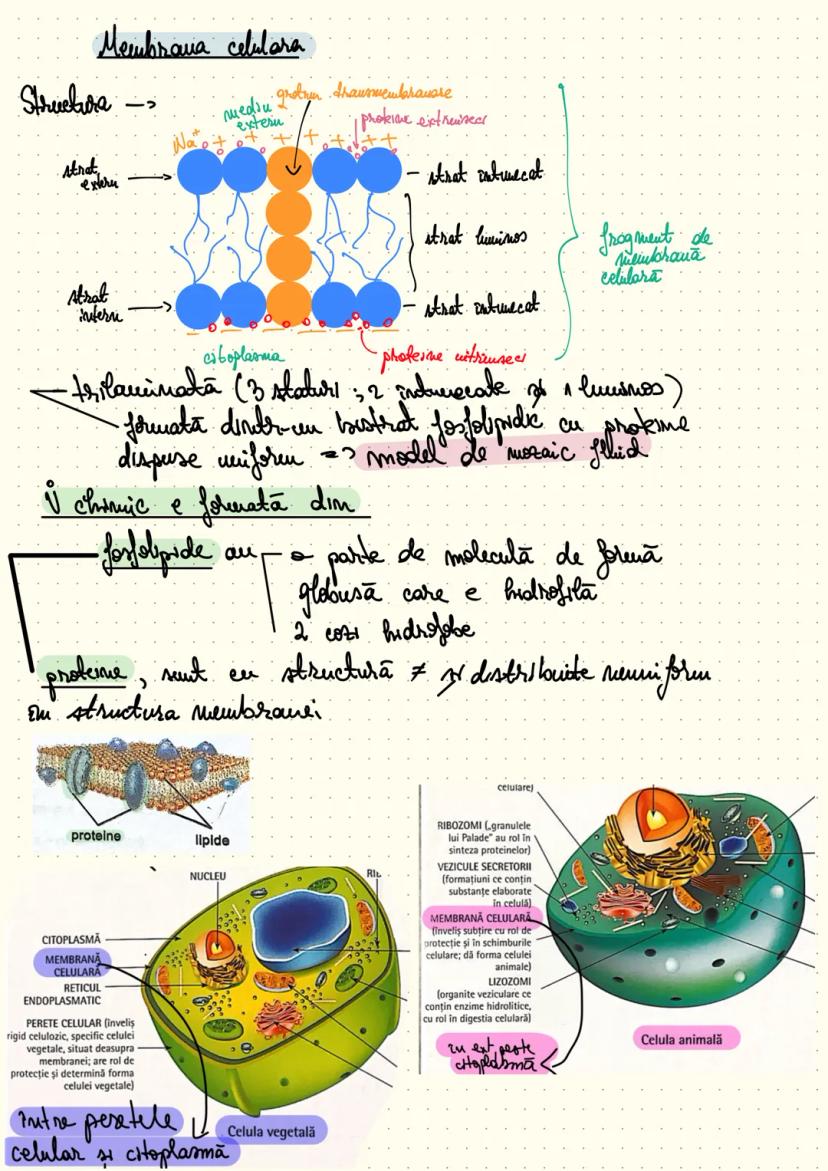 Membrana celulara
Structura ->
mediu
extern
protein transmembranare
proteine extrinseci
Na+ + + + + + +
strat
extern
strat intunecat
strat luminos
fragment de
membrană
celulară
strat
intern
strat intunecat
citoplasma
proteine intrinseci
trilaminată (3 staturi ; 2 întunecate și 1 luminos)
formată dintr-un bistrat fosfolipidic cu proteine
dispuse uniform => model de mozaic fluid
chimic e formată din
fosfolipide au
o parte de moleculă de formă
globusă care e hidrofilă
2 cozi hidrofobe
proteine, sunt cu structură ≠ și distribuite neuniform
în structura membranei
proteine
lipide
celulare)
RIBOZOMI („granulele
lui Palade" au rol în
sinteza proteinelor)
VEZICULE SECRETORII
(formațiuni ce conțin
substanțe elaborate
în celulă)
MEMBRANĂ CELULARĂ
(înveliș subțire cu rol de
protecție și în schimburile
celulare; dă forma celulei
animale)
LIZOZOMI
(organite veziculare ce
conțin enzime hidrolitice,
cu rol în digestia celulară)
în ext peste
citoplasmă
Celula animală
NUCLEU
RIB
CITOPLASMĂ
MEMBRANĂ
CELULARĂ
RETICUL
ENDOPLASMATIC
PERETE CELULAR (înveliș
rigid celulozic, specific celulei
vegetale, situat deasupra
membranei; are rol de
protecție și determină forma
celulei vegetale)
între peretele
celular și citoplasmă
Celula vegetală